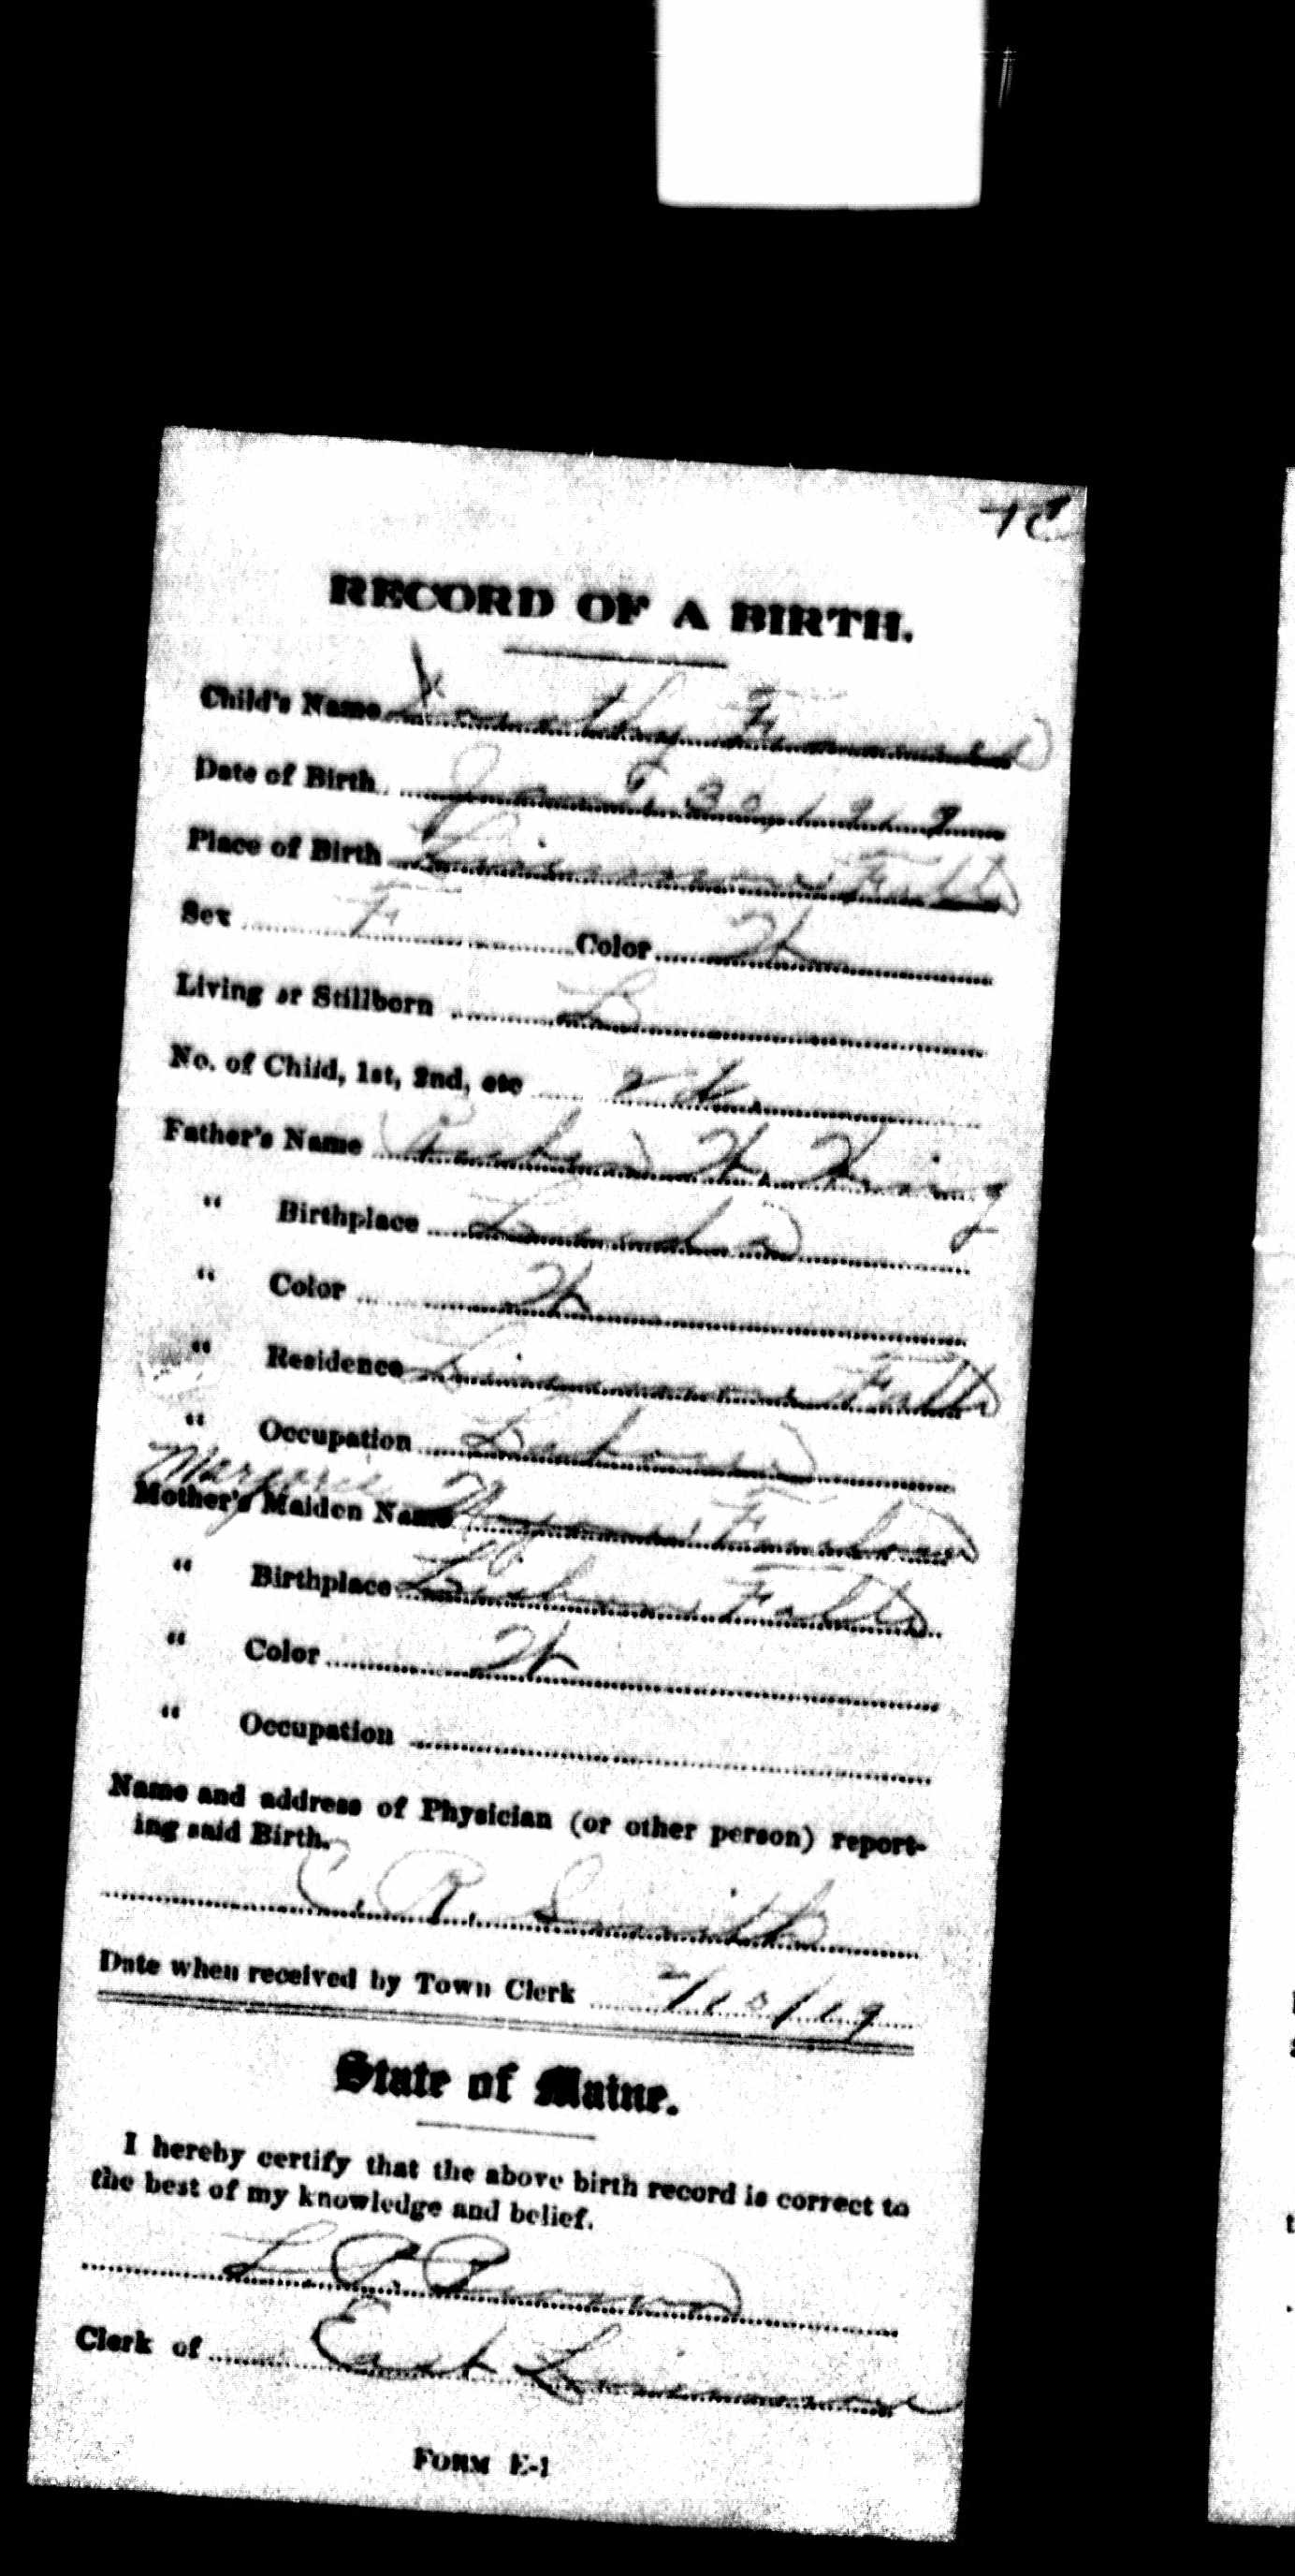 RECORD OF A BIRTH.
Child's Name Dorothy Frances
Date of Birth 1919
Place of Birth Livermore Falls
Sex F Color W
Living or Stillborn L
No. of Child, 1st, 2nd, etc
Father's Name W.
" Birthplace Canada
" Color W
" Residence Livermore Falls
" Occupation Laborer
Marjorie
Mother's Maiden Name
" Birthplace Lisbon Falls
" Color W
" Occupation
Name and address of Physician (or other person) report-
ing said Birth.
C. R. Smith
Date when received by Town Clerk
State of Maine.
I hereby certify that the above birth record is correct to
the best of my knowledge and belief.
Clerk of East Livermore
FORM E-1